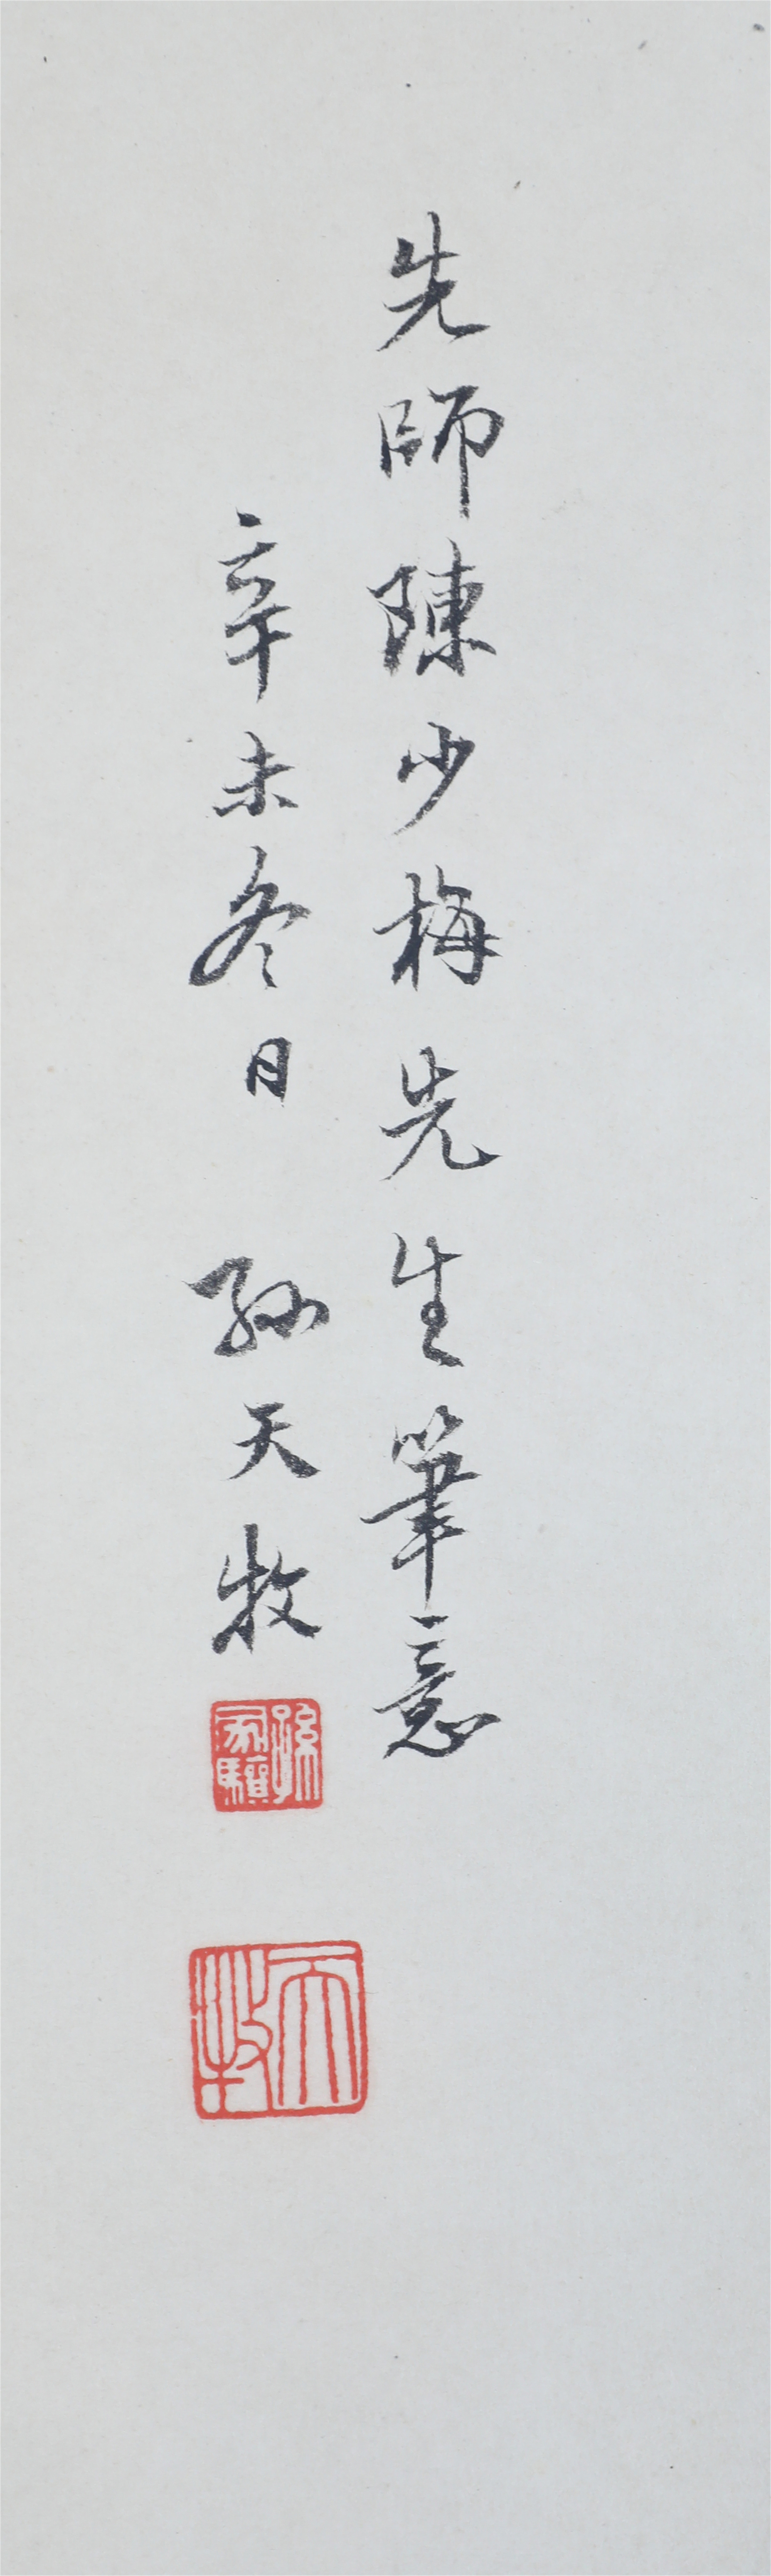 先師陳少梅先生筆意
辛未冬日 孙天牧
孫家驥
天牧